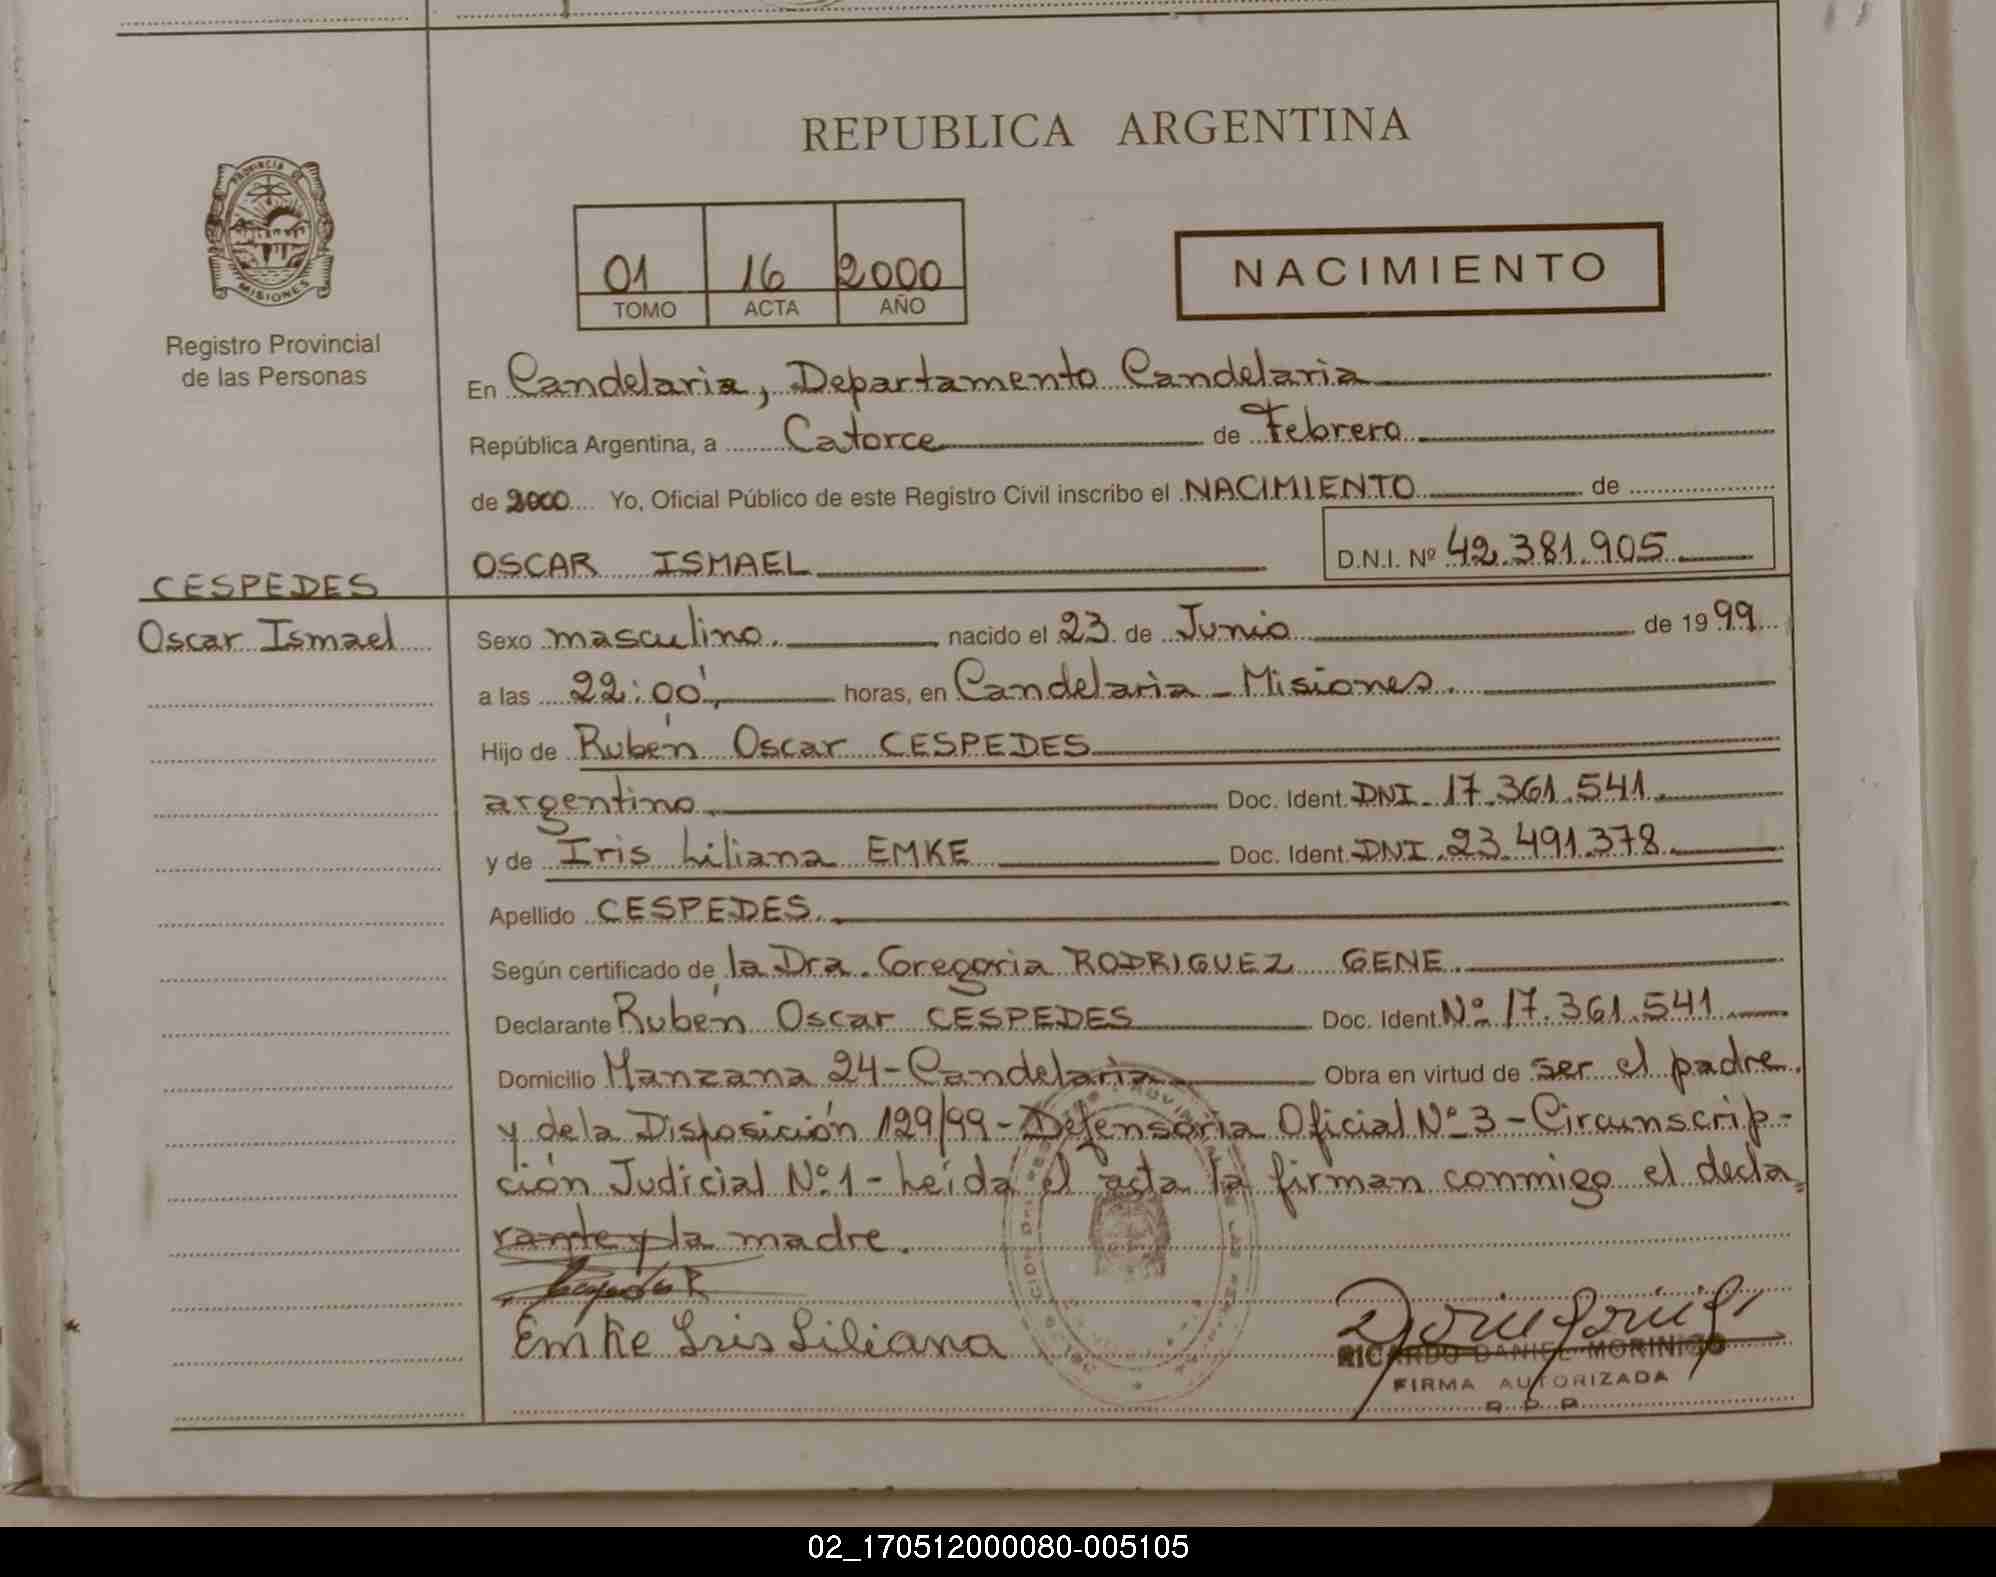 REPUBLICA ARGENTINA
PROVINCIA DE
MISIONES
Registro Provincial
de las Personas
01 16 2000
TOMO ACTA AÑO
NACIMIENTO
En Candelaria, Departamento Candelaria
República Argentina, a Catorce de Febrero
de 2000 Yo, Oficial Público de este Registro Civil inscribo el NACIMIENTO de
OSCAR ISMAEL D.N.I. Nº 42.381.905
CESPEDES
Oscar Ismael
Sexo masculino. nacido el 23 de Junio de 1999
a las 22:00', horas, en Candelaria - Misiones.
Hijo de Rubén Oscar CESPEDES
argentino Doc. Ident. DNI. 17.361.541.
y de Iris Liliana EMKE Doc. Ident. DNI. 23.491.378
Apellido CESPEDES.
Según certificado de la Dra. Gregoria RODRIGUEZ GENE.
Declarante Rubén Oscar CESPEDES Doc. Ident. Nº 17.361.541
Domicilio Manzana 24 - Candelaria Obra en virtud de ser el padre.
y de la Disposición 129/99 - Defensoria Oficial Nº 3 - Circunscrip-
ción Judicial Nº 1 - Leída el acta la firman conmigo el decla-
rante y la madre.
Emke Iris Liliana
RICARDO DANIEL MORINIGO
FIRMA AUTORIZADA
R. P. P.
02_170512000080-005105